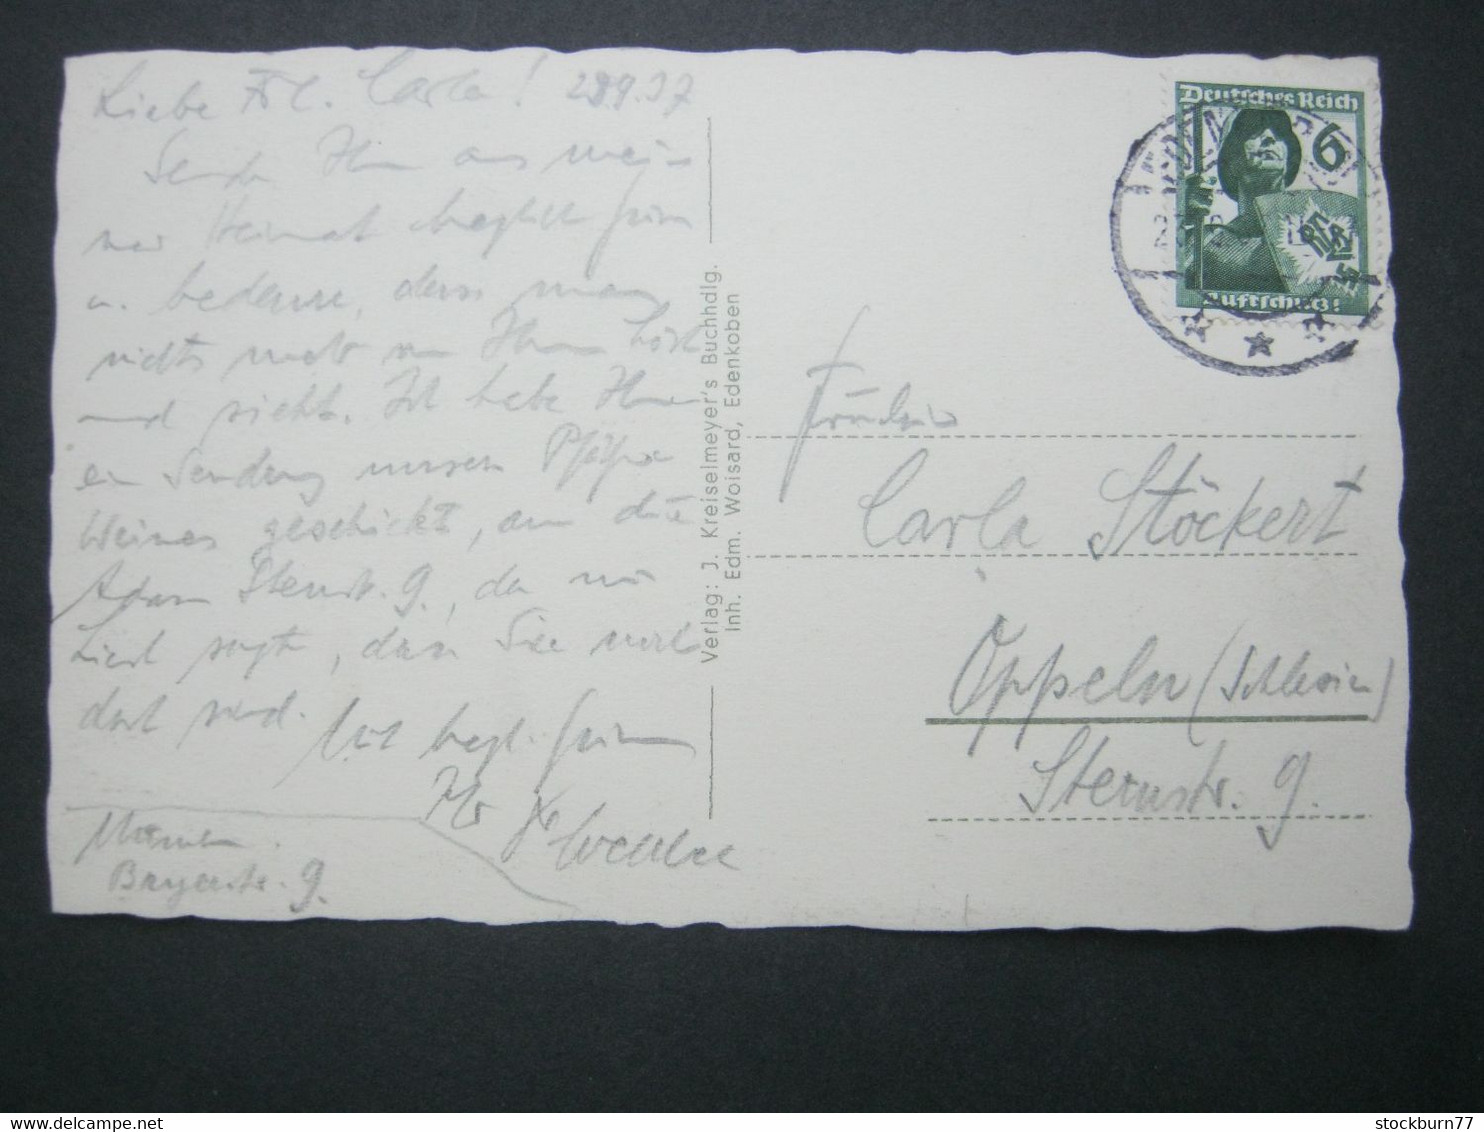 Liebe Frl. Carla! 28.9.37
Sende Ihnen aus mei-
ner Heimat herzliche Grüsse
u. bedaure, dass man
nichts mehr von Ihnen hört
und sieht. Ich habe Ihnen
ein Sendung unseres Pfälzer
Weines geschickt, an die
Adam Sternstr. 9., da
sagt, dass Sie noch
dort sind.
Mit herzl. Grüssen
Ihr
München.
Bayerstr. 9.
Verlag: J. Kreiselmeyer's Buchhdlg.
Inh. Edm. Woisard, Edenkoben
Deutsches Reich
6
Luftschutz!
Fräulein
Carla Stöckert
Oppeln (Schlesien)
Sternstr. 9.
stockburn77